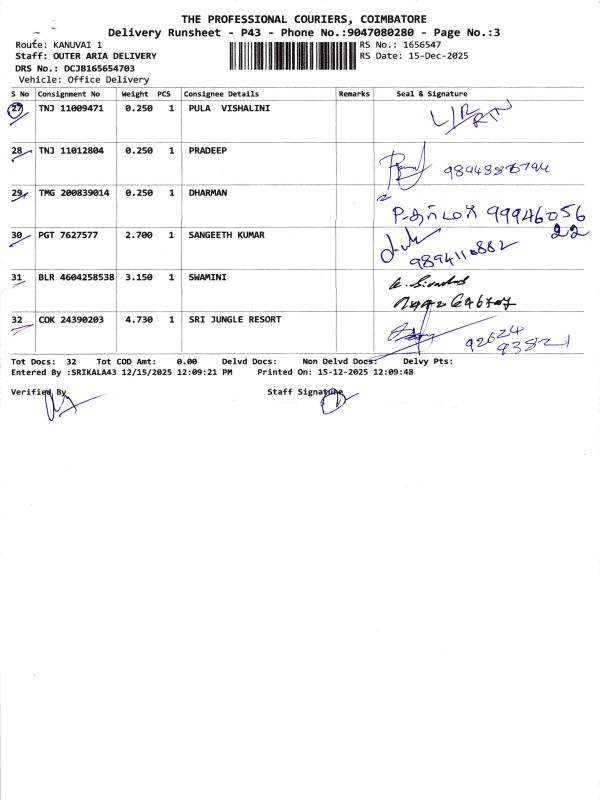 THE PROFESSIONAL COURIERS, COIMBATORE
Delivery Runsheet - P43 - Phone No.:9047080280 - Page No.:3
Route: KANUVAI 1 RS No.: 1656547
Staff: OUTER ARIA DELIVERY RS Date: 15-Dec-2025
DRS No.: DCJB165654703
Vehicle: Office Delivery
S No Consignment No Weight PCS Consignee Details Remarks Seal & Signature
27 TNJ 11009471 0.250 1 PULA VISHALINI L/R RTN
28 TNJ 11012804 0.250 1 PRADEEP
29 TMG 200839014 0.250 1 DHARMAN P-தர்மன் 99946056
22
30 PGT 7627577 2.700 1 SANGEETH KUMAR 9894110882
31 BLR 4604258538 3.150 1 SWAMINI
32 COK 24390203 4.730 1 SRI JUNGLE RESORT 92624
93821
Tot Docs: 32 Tot COD Amt: 0.00 Delvd Docs: Non Delvd Docs: Delvy Pts:
Entered By :SRIKALA43 12/15/2025 12:09:21 PM Printed On: 15-12-2025 12:09:48
Verified By Staff Signature